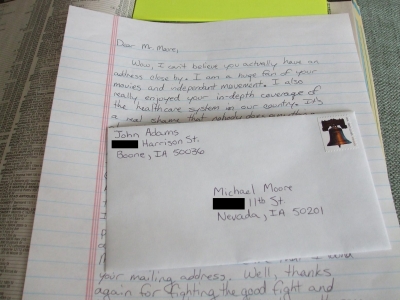 Dear Mr. Moore,
Wow, I can't believe you actually have an
address close by. I am a huge fan of your
movies and independent movement. I also
really enjoyed your in-depth coverage of
the healthcare system in our country. It's
a real shame that nobody does
John Adams
Harrison St.
Boone, IA 50036
Michael Moore
11th St.
Nevada, IA 50201
your mailing address. Well, thanks
again for fighting the good fight and